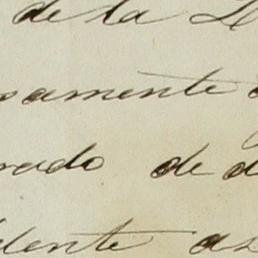 de la
samente
rado de d
dente as